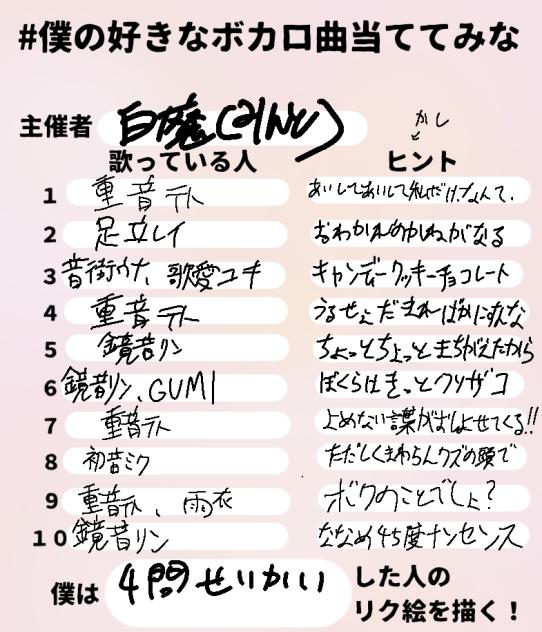 #僕の好きなボカロ曲当ててみな
主催者 白魔(2INC)
かし
歌っている人 ヒント
1 重音テト あいしてあいして私だけ、なんて、
2 足立レイ おわかれのかねがなる
3 音街ウナ、歌愛ユキ キャンディークッキーチョコレート
4 重音テト うるせぇだまればかにすんな
5 鏡音リン ちょっとちょっとまちがえたから
6 鏡音リン、GUMI ぼくらはきっとクソザコ
7 重音テト よめない言葉がおしよせてくる!!
8 初音ミク ただしくまわらんクズの頭で
9 重音テト、雨衣 ボクのことでしょ?
10 鏡音リン ななめ45度ナンセンス
僕は 4問せいかい した人の
リク絵を描く!